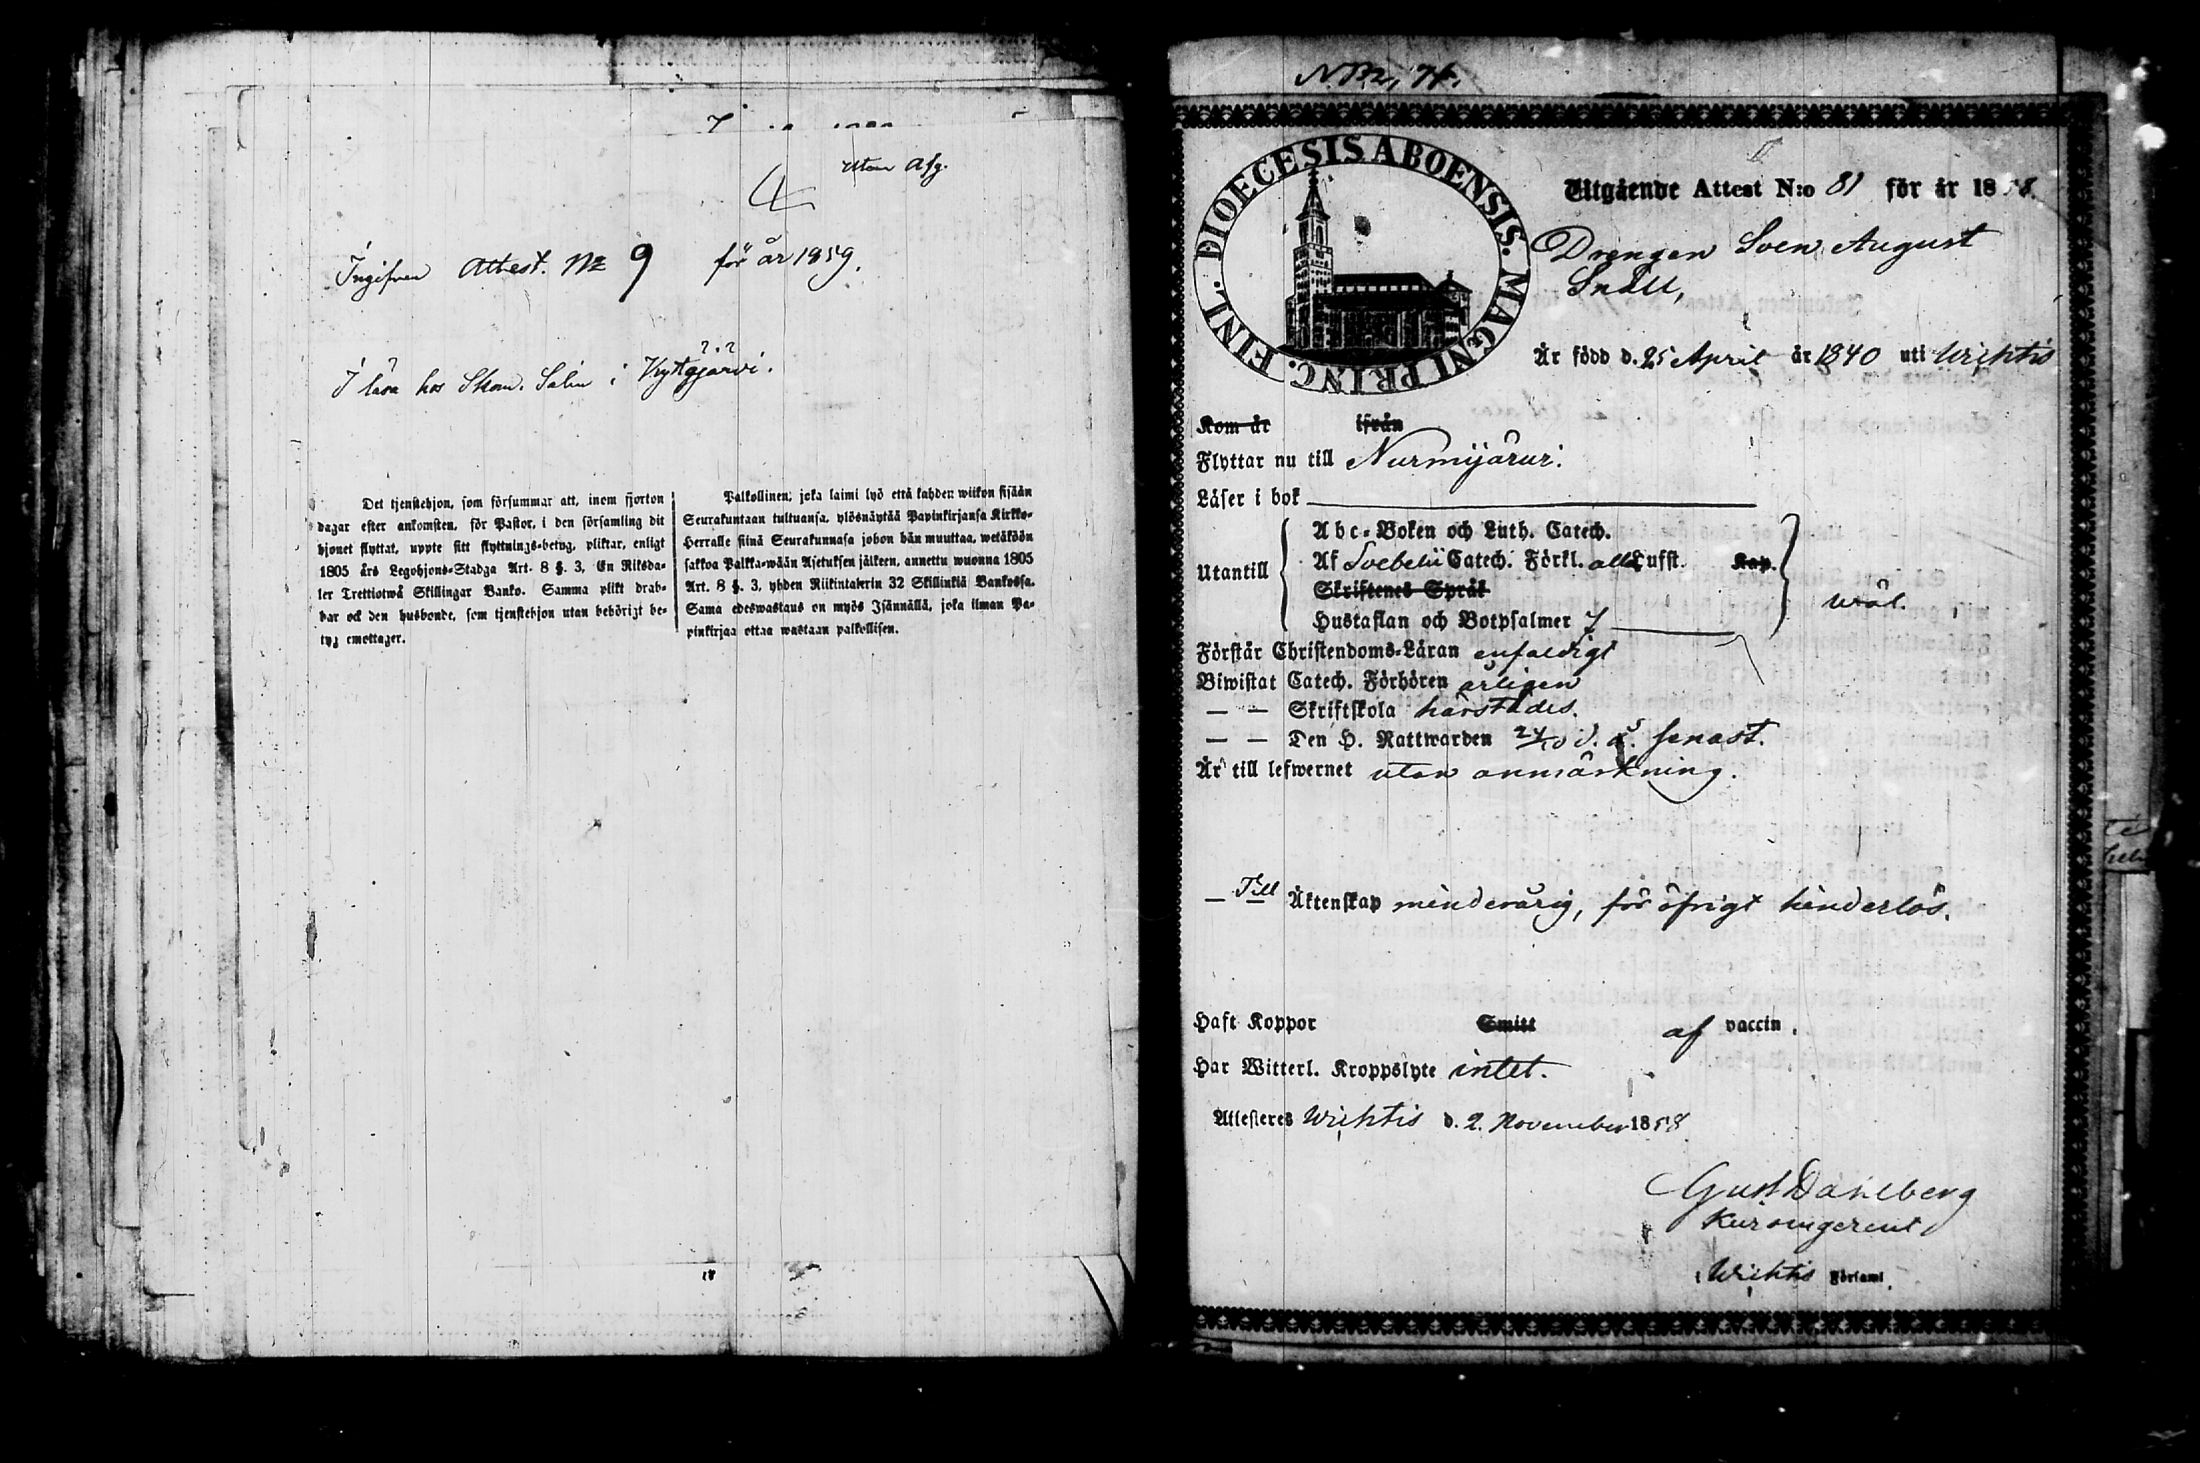 utan Afg.
Ingifven Attest. No 9 för år 1859.
I lära hos Skom. Salin i Kytäjärvi.
Det tjenstehjon, som försummar att, inom fjorton
dagar efter ankomsten, för Pastor, i den församling dit
hjonet flyttat, uppte sitt flyttnings-betyg, pliktar, enligt
1805 års Legohjons-Stadga Art. 8 §. 3, En Riksda-
ler Trettiotwå Skillingar Banko. Samma plikt drab-
bar ock den husbonde, som tjenstehjon utan behörigt be-
tyg emottager.
Palkollinen, joka laimi lyö että kahden wiikon sisään
Seurakuntaan tultuansa, ylösnäytää Papinkirjansa Kirkko-
Herralle siinä Seurakunnasa johon hän muuttaa, wetäköön
sakkoa Palkka-wään Asetuksen jälkeen, annettu wuonna 1805
Art. 8 §. 3, yhden Riikintalerin 32 Skillinkiä Bankossa.
Sama edeswastaus on myös Isännällä, joka ilman Pa-
pinkirjaa ottaa wastaan palkollisen.
DIOECESIS ABOENSIS. MAGNI PRINC. FINL.
Utgående Attest N:o 81 för år 1858
Drengen Sven August
Snäll,
Är född d. 25 April år 1840 uti Wichtis
Kom år ifrån
Flyttar nu till Nurmijärvi.
Läser i bok
Abc-Boken och Luth. Catech.
Utantill Af Svebelii Catech. Förkl. alla Lufst. Kap.
Skriftenes Språk
wäl.
Hustaflan och Botpsalmer 7
Förstår Christendoms-Läran enfaldigt
Biwistat Catech. Förhören årligen
— — Skriftskola härstädes.
— — Den H. Nattwarden 24/10 d. å. senast.
Är till lefwernet utan anmärkning.
— Till Äktenskap minderårig, för öfrigt hinderlös.
Haft Koppor Smitt af vaccin.
Har Witterl. Kroppslyte intet.
Attesteres Wichtis d. 2. November 1858
Gust Dahlberg
i Wichtis Församl.